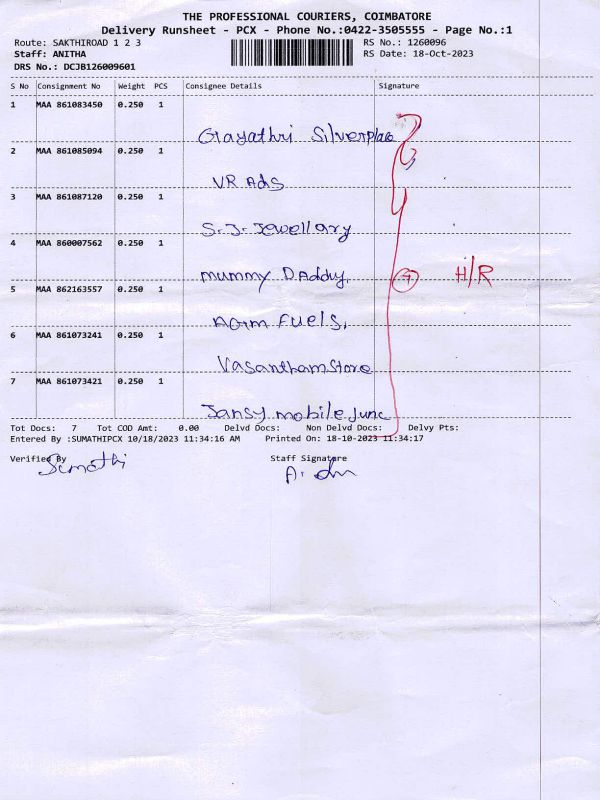 THE PROFESSIONAL COURIERS, COIMBATORE
Delivery Runsheet - PCX - Phone No.:0422-3505555 - Page No.:1
Route: SAKTHIROAD 1 2 3 RS No.: 1260096
Staff: ANITHA RS Date: 18-Oct-2023
DRS No.: DCJB126009601
S No Consignment No Weight PCS Consignee Details Signature
1 MAA 861083450 0.250 1
Gayathri Silverplac
2 MAA 861085094 0.250 1
VR Ads
3 MAA 861087120 0.250 1
S.J. Jewellary
4 MAA 860007562 0.250 1
Mummy Daddy. 7 H/R
5 MAA 862163557 0.250 1
Fuels.
6 MAA 861073241 0.250 1
Vasantham Store
7 MAA 861073421 0.250 1
Jansy mobile Junc
Tot Docs: 7 Tot COD Amt: 0.00 Delvd Docs: Non Delvd Docs: Delvy Pts:
Entered By :SUMATHIPCX 10/18/2023 11:34:16 AM Printed On: 18-10-2023 11:34:17
Verified By Staff Signature
Sumathi